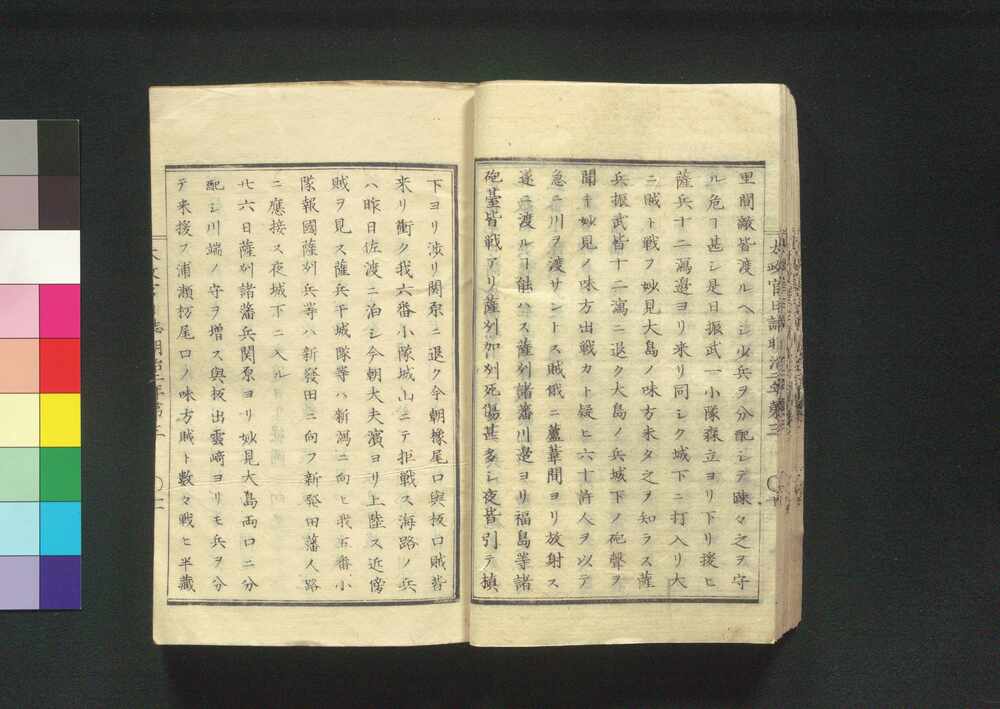 里間敵皆渡ルヘシ少兵ヲ分配シテ踈々之ヲ守
ル危ヿ甚シ是日振武一小隊森立ヨリ下リ援ヒ
薩兵十二潟邉ヨリ来リ同シク城下ニ打入リ大
ニ賊ト戦フ妙見大島ノ味方未タ之ヲ知ラス薩
兵振武皆十二潟ニ退ク大島ノ兵城下ノ砲聲ヲ
聞キ妙見ノ味方出戦カト疑ヒ六十許人ヲ以テ
急ニ川ヲ渡サントス賊俄ニ蘆葦間ヨリ放射ス
遂ニ渡ルヿ能ハス薩州諸藩川邉ヨリ福島等諸
砲臺皆戦アリ薩州加州死傷甚多シ夜皆引テ槙
下ヨリ渉リ関原ニ退ク今朝橡尾口與板口賊皆
来リ衝ク我六番小隊城山ニテ拒戦ス海路ノ兵
ハ昨日佐渡ニ泊シ今朝大夫濱ヨリ上陸ス近傍
賊ヲ見ス薩兵干城隊等ハ新潟ニ向ヒ我五番小
隊報國薩州兵等ハ新發田ニ向フ新発田藩人路
ニ應接ス夜城下ニ入ル
廿六日薩州諸藩兵関原ヨリ妙見大島両口ニ分
配シ川端ノ守ヲ増ス與板出雲崎ヨリモ兵ヲ分
テ来援フ浦瀬栃尾口ノ味方賊ト數々戦ヒ半藏
太政官日誌明治二年第三